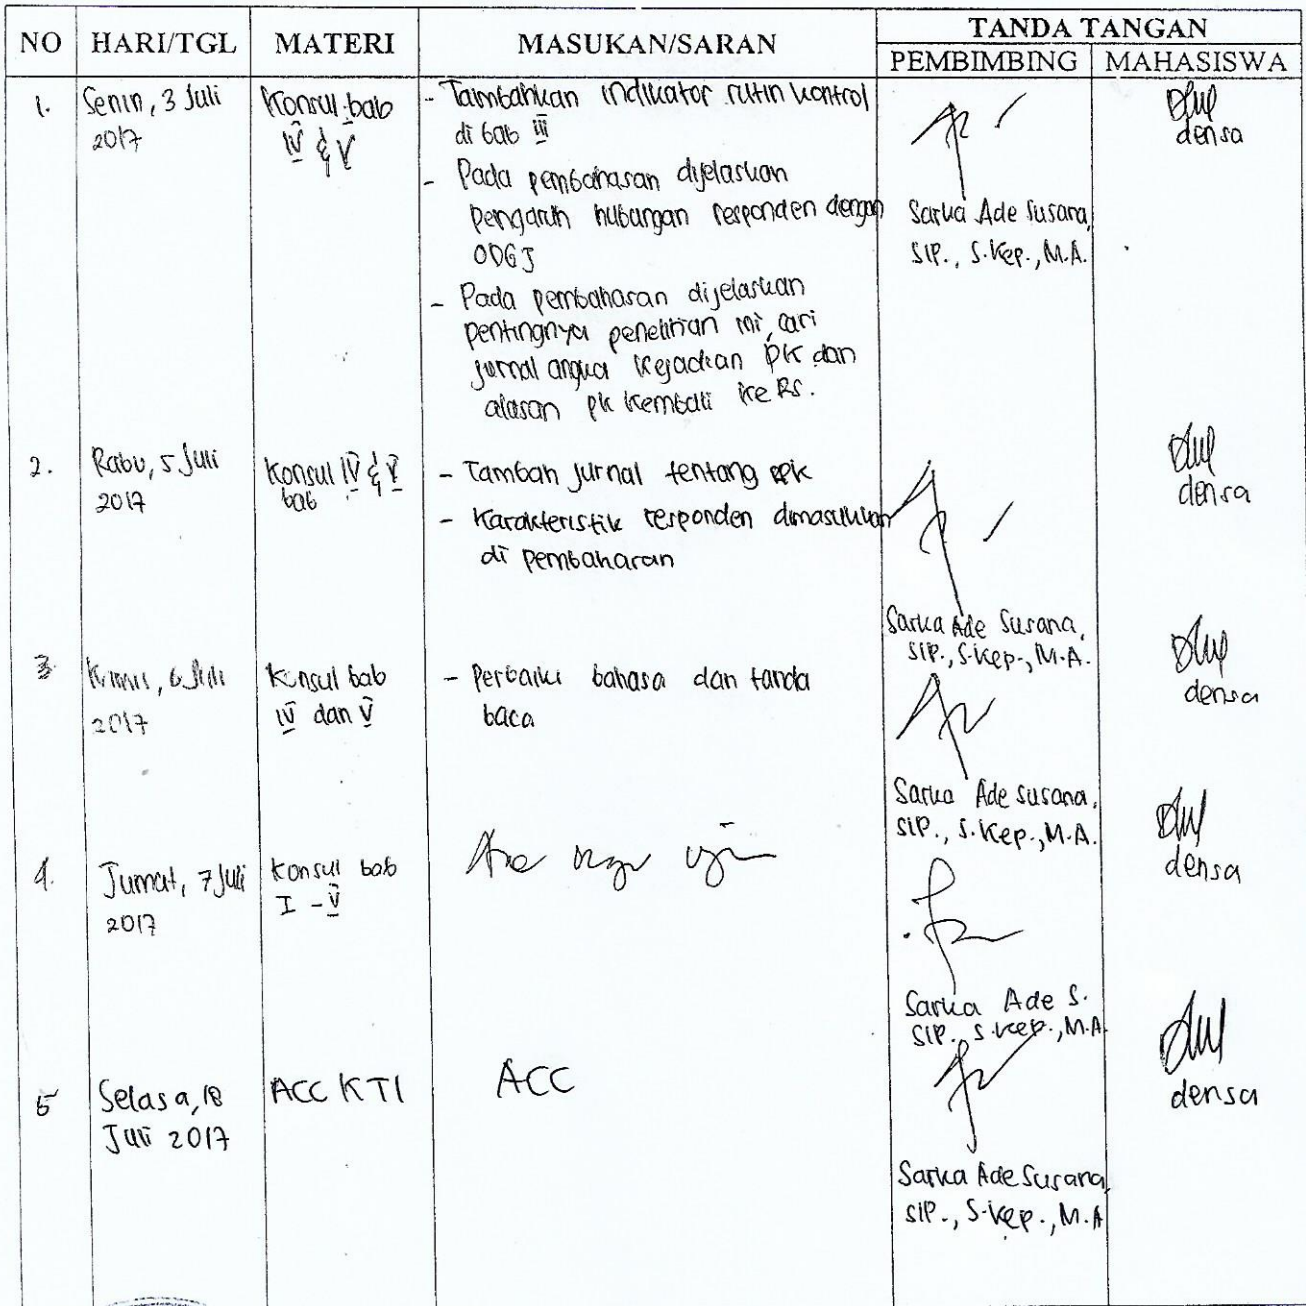 NO HARI/TGL MATERI MASUKAN/SARAN TANDA TANGAN
PEMBIMBING MAHASISWA
1. Senin, 3 Juli
2017
Konsul bab
IV & V
- Tambahkan indikator rutin kontrol
di bab III
- Pada pembahasan dijelaskan
pengaruh hubungan responden dengan
ODGJ
- Pada pembahasan dijelaskan
pentingnya penelitian ini, cari
jurnal angka kejadian PK dan
alasan pk kembali ke RS.
Sarka Ade Susana,
SIP., S.Kep., M.A.
densa
2. Rabu, 5 Juli
2017
Konsul IV & V
bab
- Tambah jurnal tentang pk
- Karakteristik responden dimasukkan
di pembahasan
Sarka Ade Susana,
SIP., S.Kep., M.A.
densa
3. Kamis, 6 Juli
2017
Konsul bab
IV dan V
- Perbaiki bahasa dan tanda
baca
Sarka Ade Susana,
SIP., S.Kep., M.A.
densa
4. Jumat, 7 Juli
2017
Konsul bab
I - V
Sarka Ade S.
SIP., S.Kep., M.A
densa
5 Selasa, 18
Juli 2017
ACC KTI
ACC
Sarka Ade Susana,
SIP., S.Kep., M.A
densa